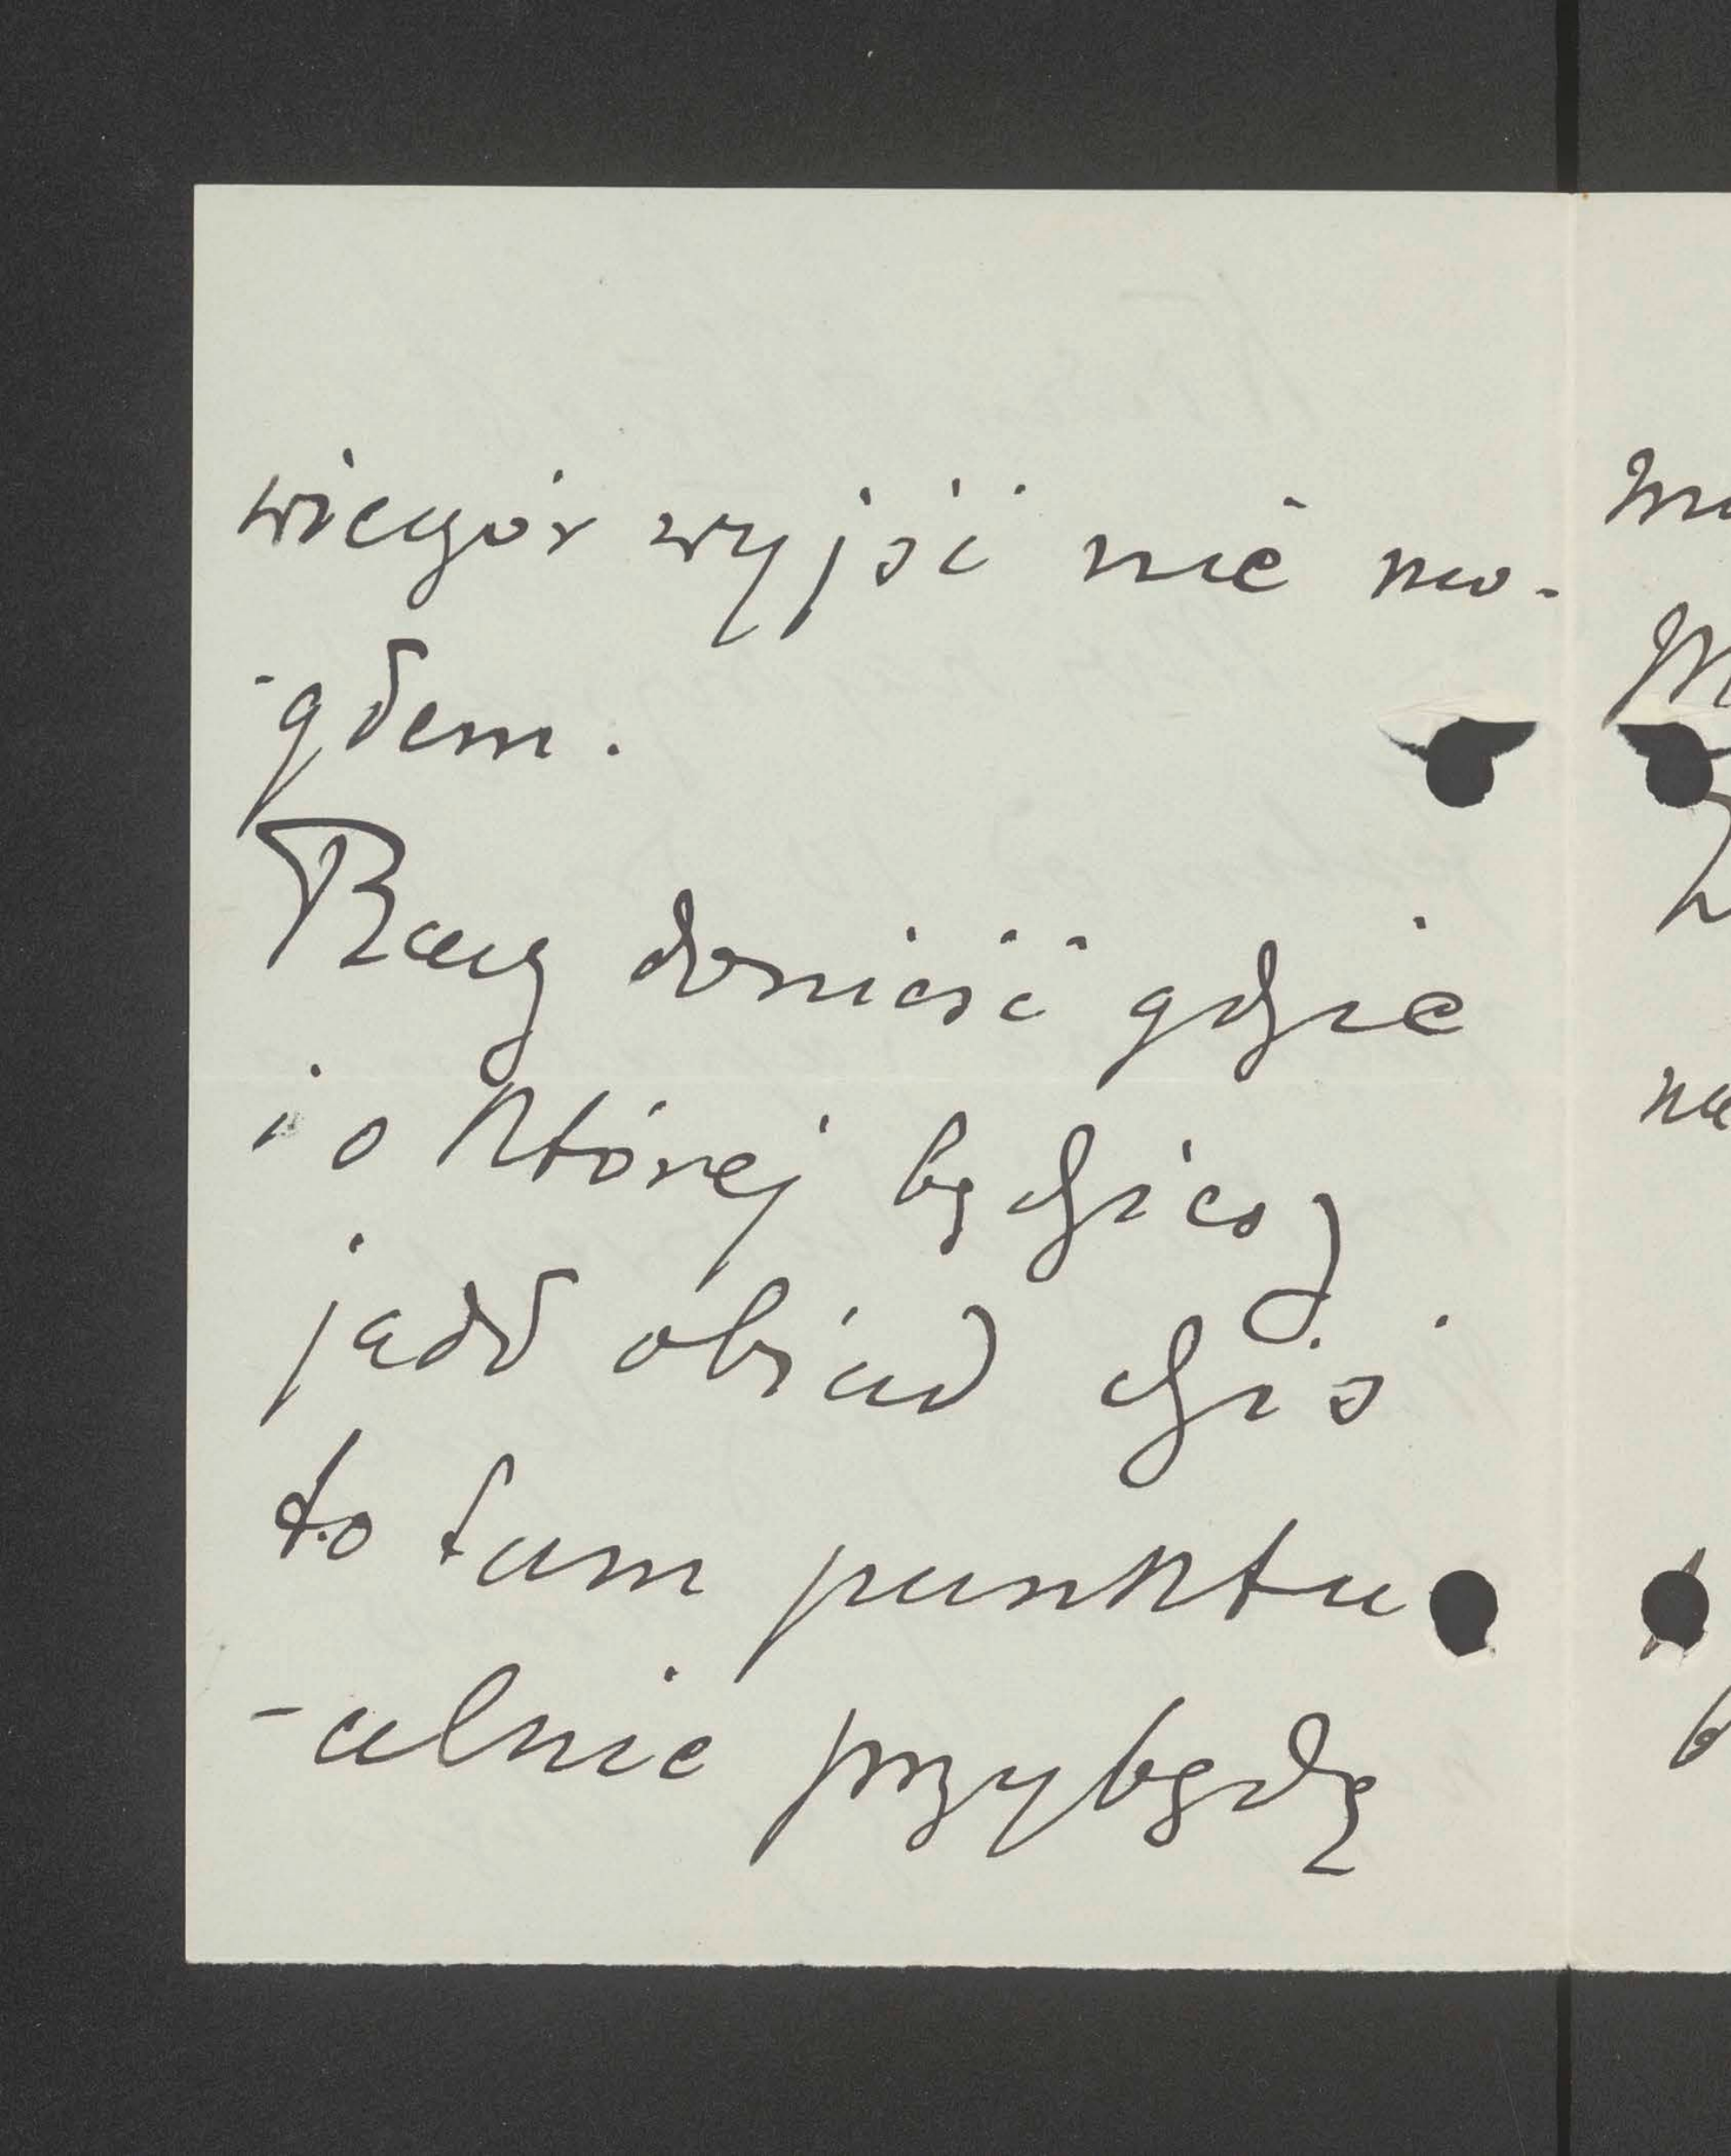 wieczór wyjść nie mo-
-głem.
Raczy donieść gdzie
i o której będziesz
jadł obiad dziś
to tam punktu
-alnie przybędę